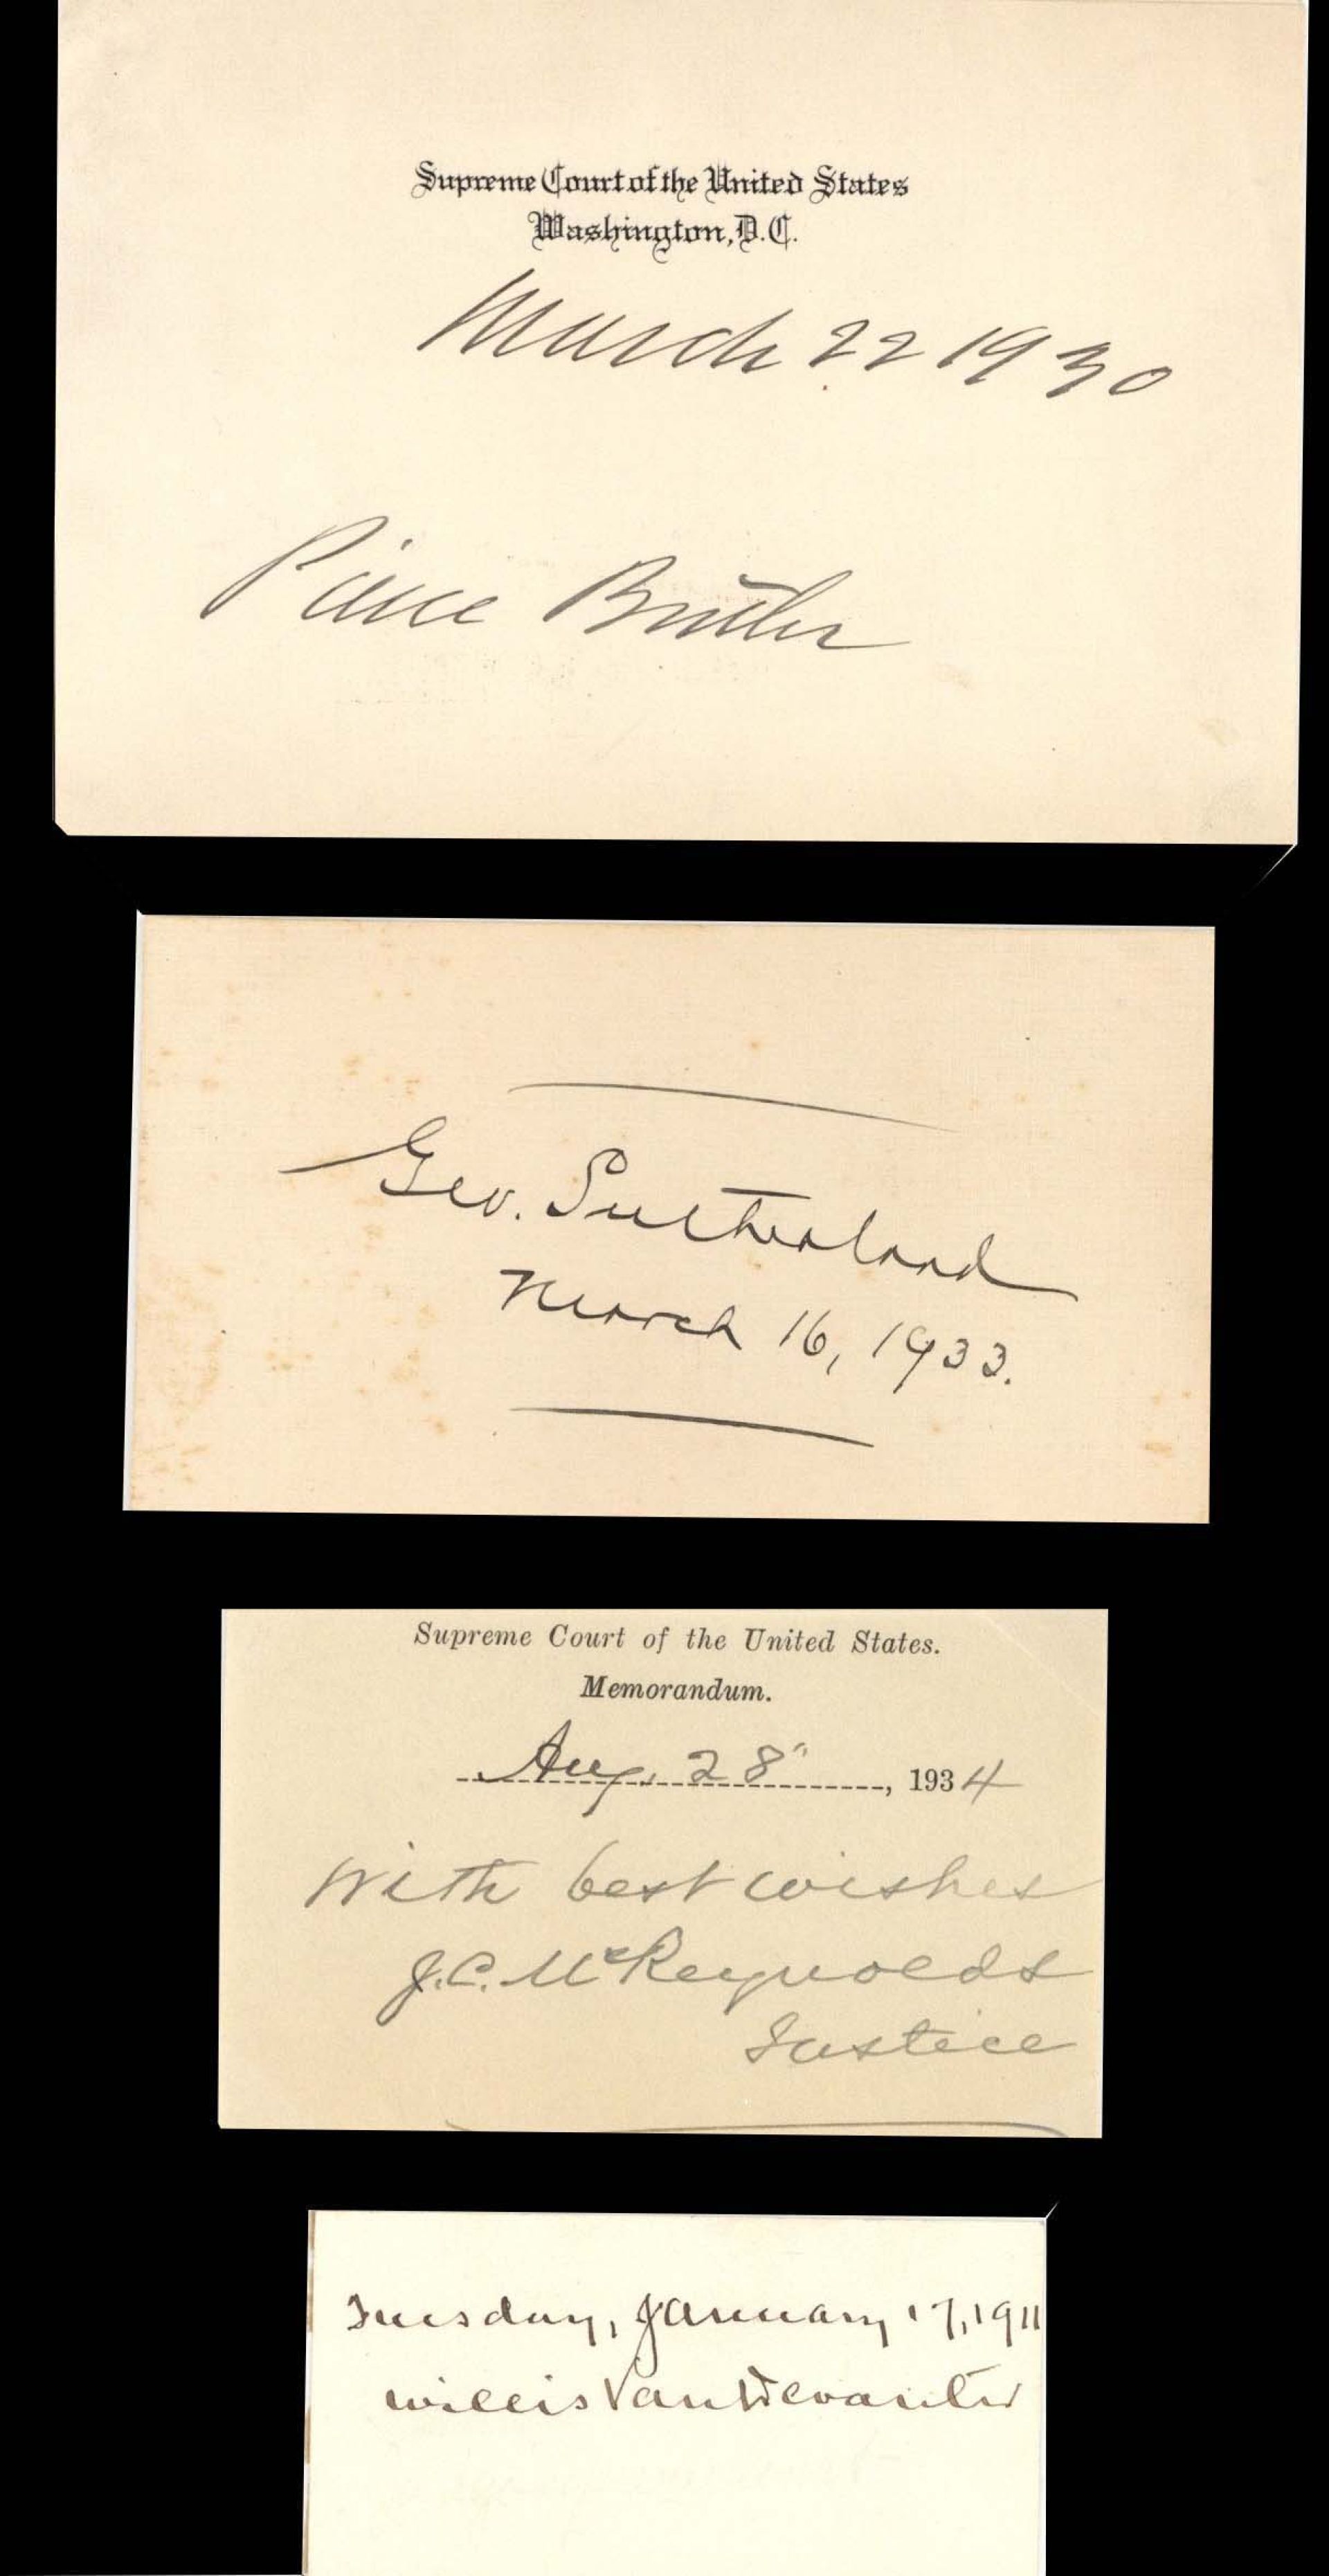 Supreme Court of the United States
Washington, D.C.
March 22 1930
Pierce Butler
Geo. Sutherland
March 16, 1933.
Supreme Court of the United States.
Memorandum.
Aug. 28", 1934
With best wishes
J.C. McReynolds
Justice
Tuesday, January 17, 1911
Willis Van Devanter